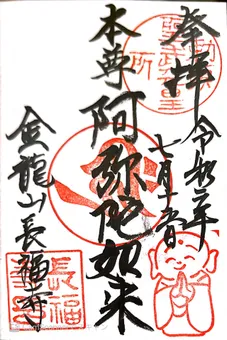 奉拝
令和二年
七月十五日
本尊
阿弥陀如来
金龍山長福寺
長福